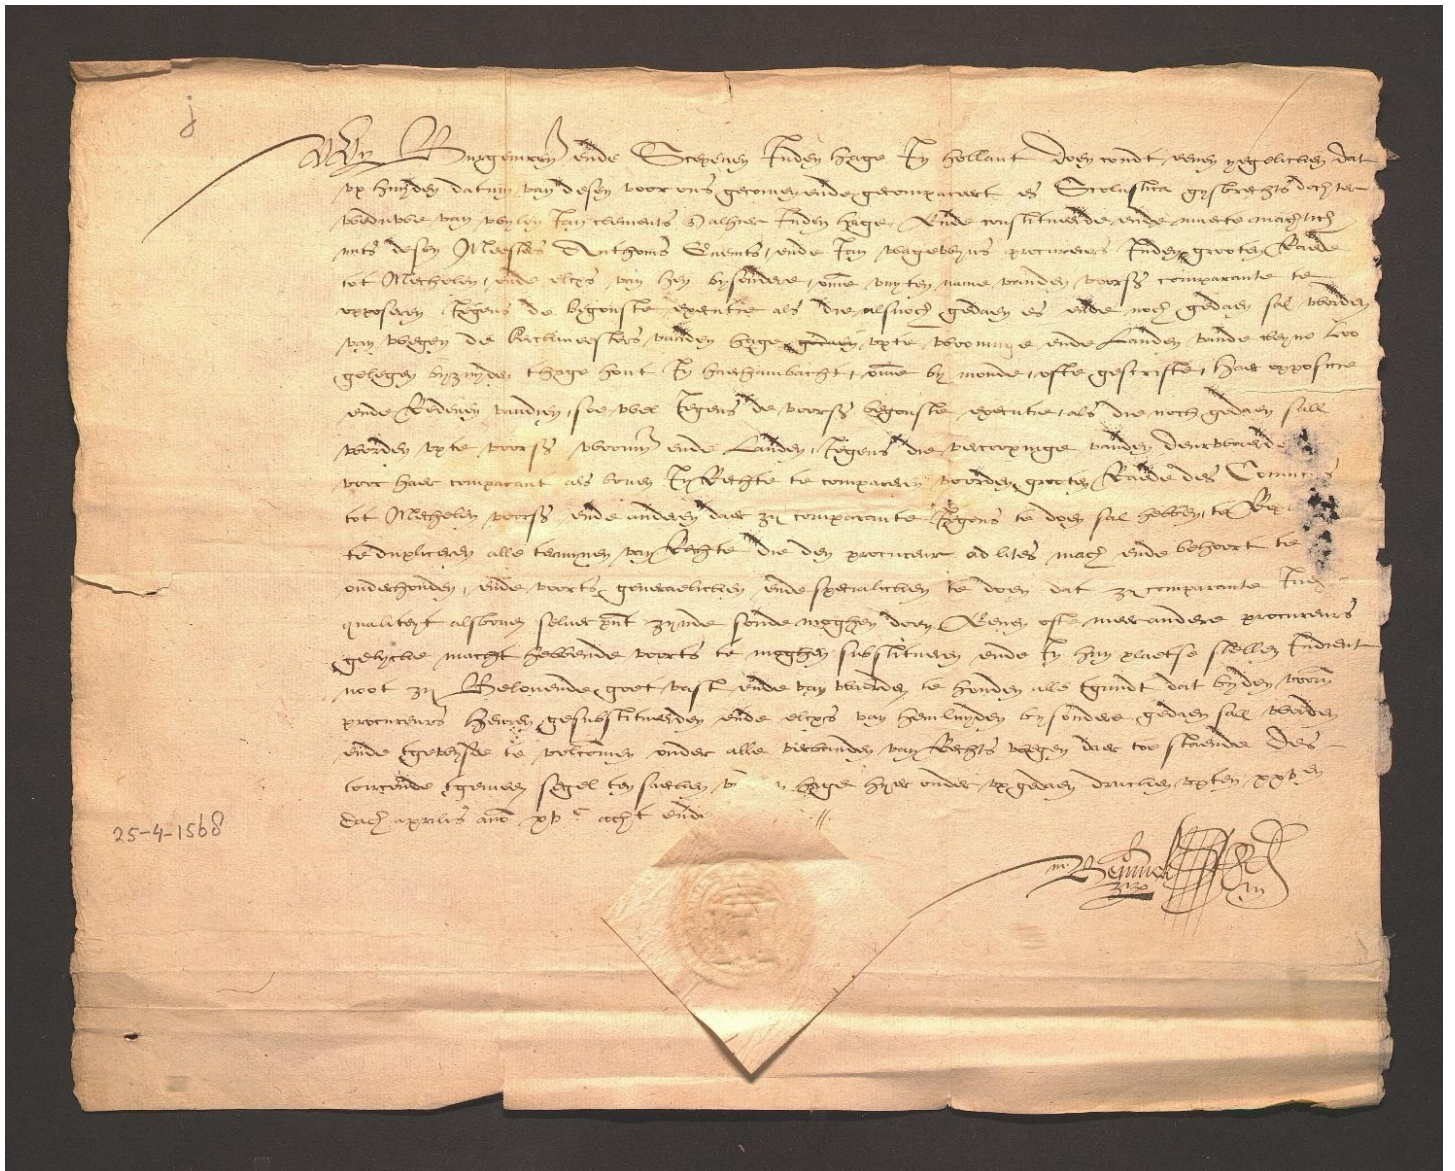 j
Wy Burgemrn ende Scepenen Inden hage In hollant doen condt eenen yegelicken dat
op huyden datum van desen voor ons gecomen ende gecompareert es Scolastica gysbrechts dochter
weduwe van wylen Jan clements alhier Inden hage Ende constitueerde ende maecte machtich
mits desen Meesters Anthonis ende Jan wagewyns procureurs Inden grooten Raede
tot Mechelen ende elcxs van hen bysondere omme vuyten name vanden voorss comparante te
opposeren Jegens de begonste executie als die alsnoch gedaen es ende noch gedaen sal werden
van wegen de kerckmeesters vanden hage opte wooninge ende Landen vande
gelegen bezuyden thage hout In haechambacht omme by monde ofte gescrifte haer opposicie
ende Redenen vandien soe wel Jegens de voorss begonste executie als die noch gedaen sall
werden opte voorss ende Landen Jegens die vercopinge vanden deurwaerde
voor haer comparant als boven In Rechte te compareren voorden grooten Raede des Conincx
tot Mechelen voorss ende anderen daer zy comparante Jegens te doen sal hebben te
te dupliceren alle termynen van Rechte die den procureur ad lites mach ende behoort te
onderhouden ende voorts generaelicken ende specialicken te doen dat zy comparante Inder
qualiteyt als boven selver pnt zynde soude moghen doen Eenen ofte meer andere procureurs
gelycke macht hebbende voorts te moghen substitueren ende In hun plaetse stellen Indient
noot zy Belovende goet vast ende van waerden te houden alle tgundt dat byden voorn
procureurs heuren gesubstitueerden ende elcxs van hemluyden bysondere gedaen sall werden
ende tgewysde te volcomen onder alle verbanden van Rechts wegen daer toe staende Des
toirconde tgemeen segel ten saecken hage hyer onder op gedaen drucken opten xxven
dach aprilis ano xvc acht ende
25-4-1568